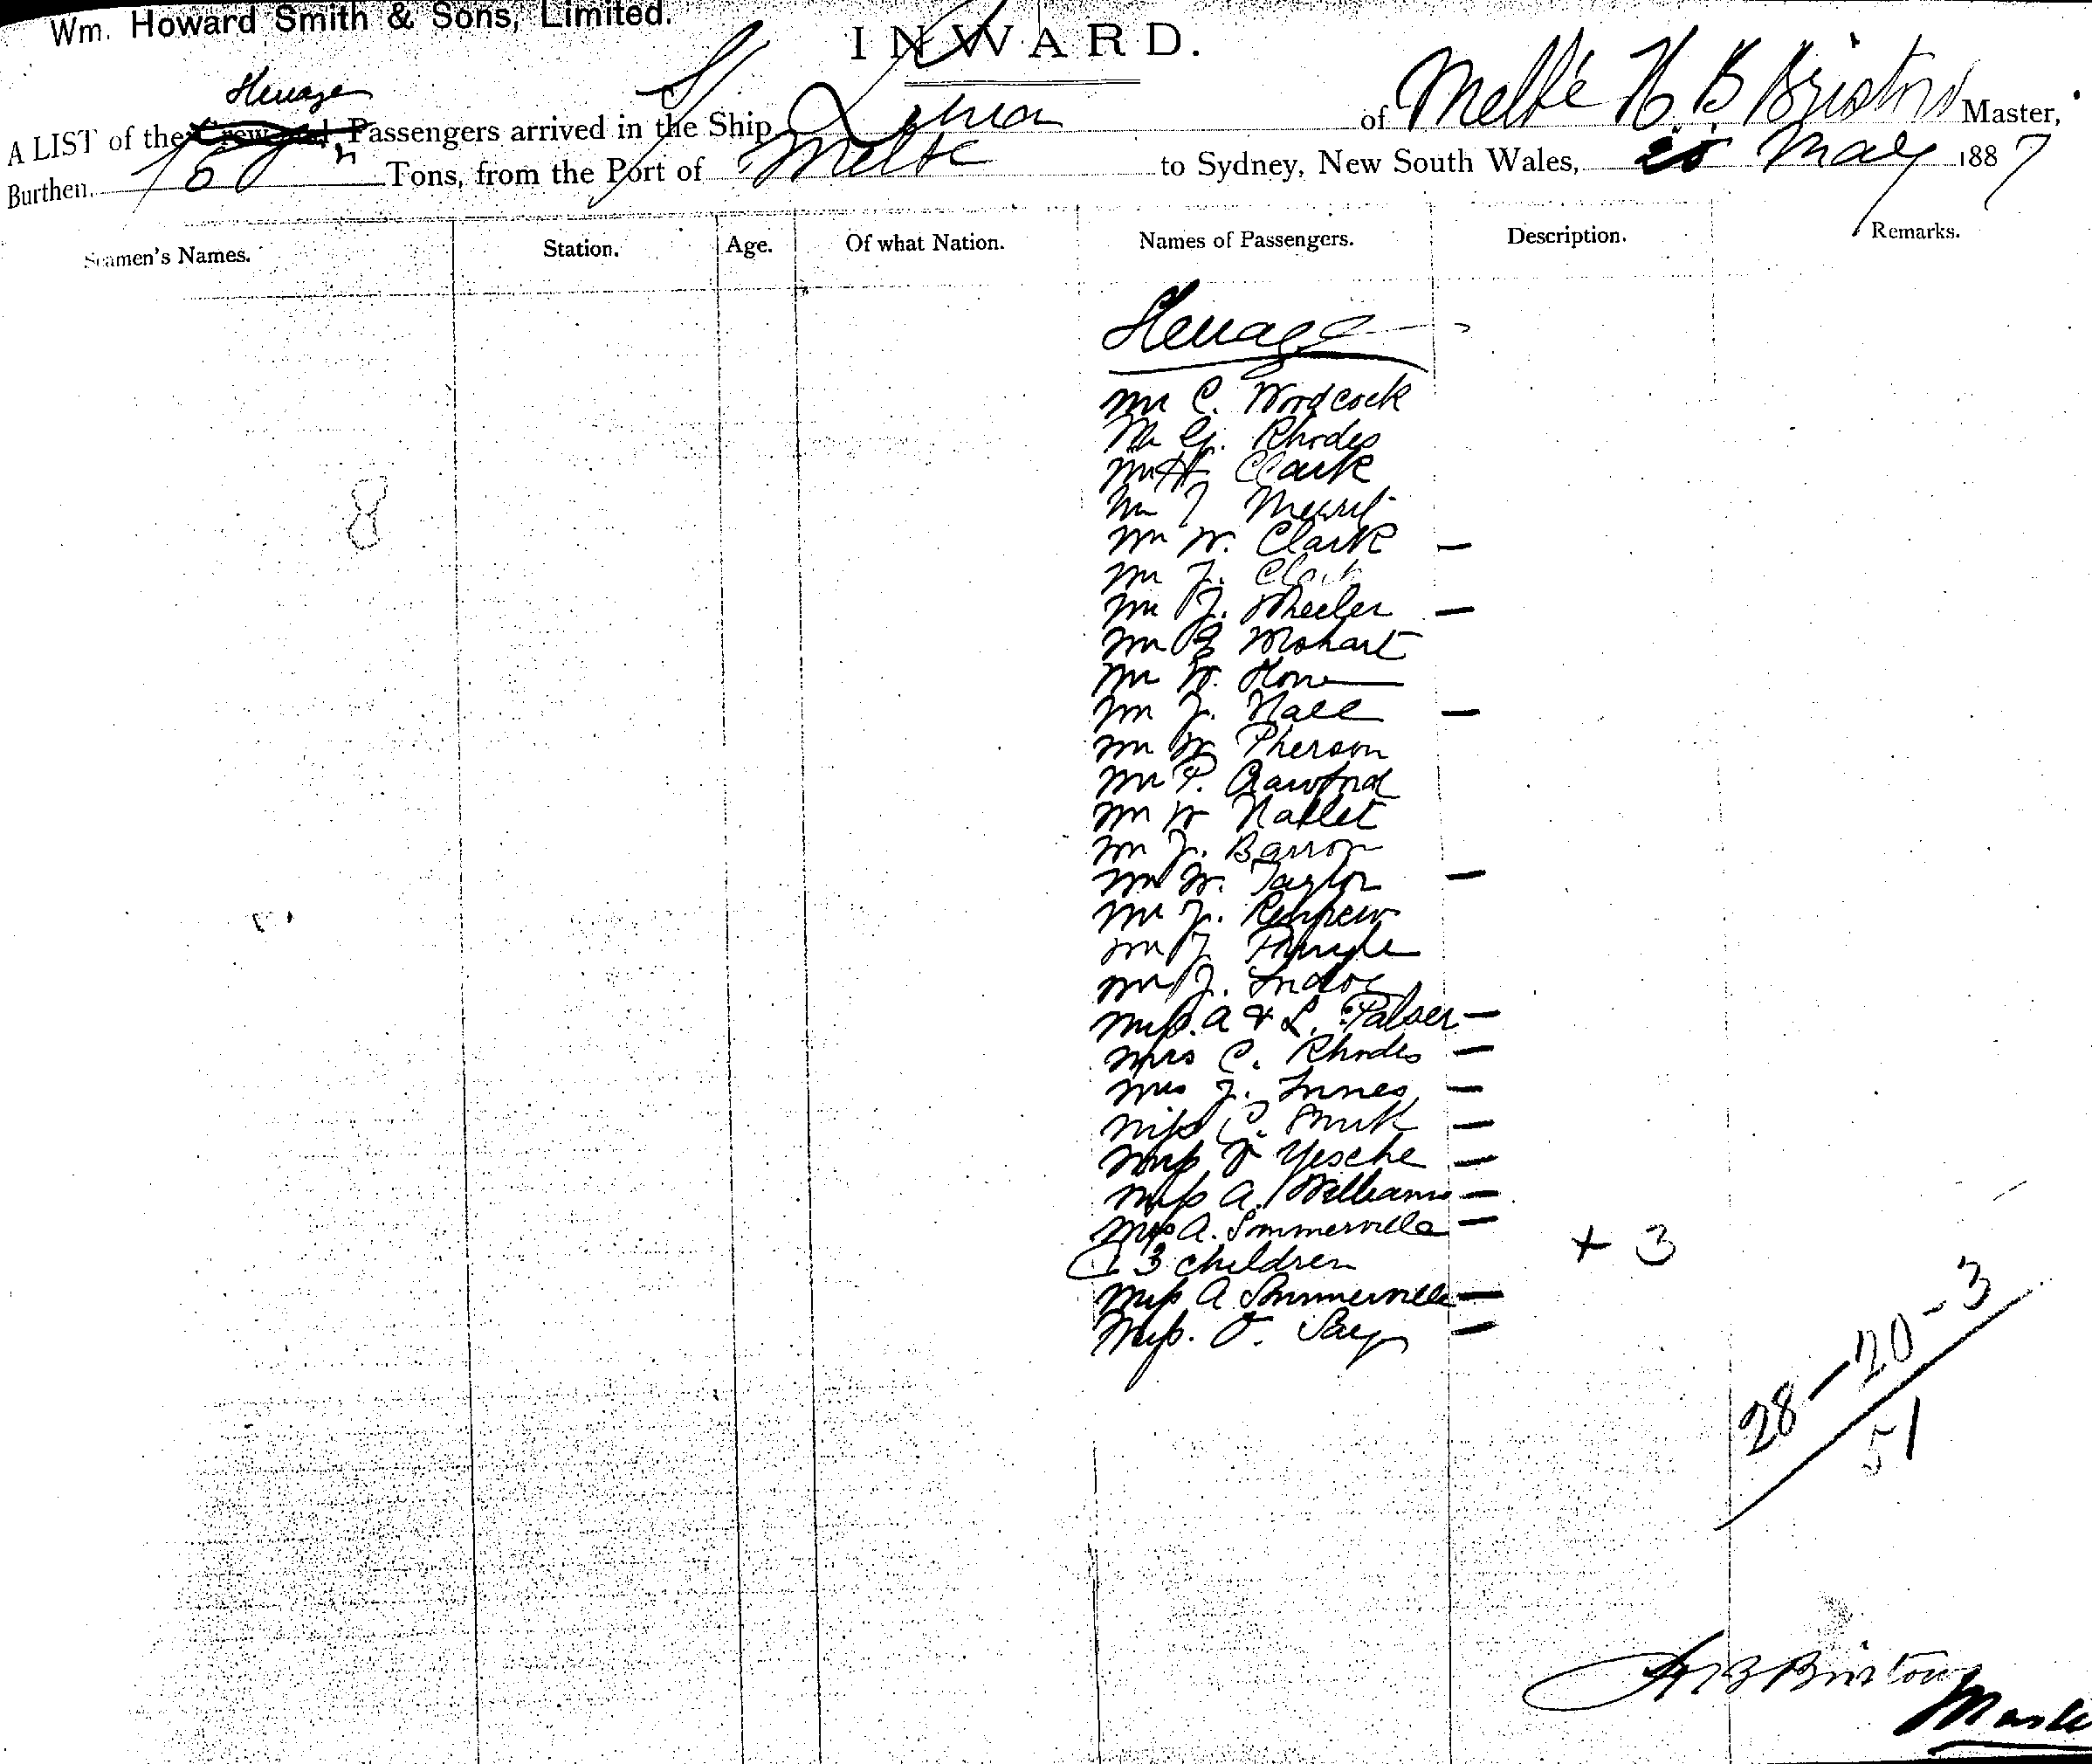 Wm. Howard Smith & Sons, Limited.
INWARD.
Steerage
A LIST of the Crew and Passengers arrived in the Ship of Melbe H B Bristow Master,
Burthen Tons, from the Port of Melbe to Sydney, New South Wales, 25 May 1887
Seamen's Names. Station. Age. Of what Nation. Names of Passengers. Description. Remarks.
Steerage
Mr C. Woodcock
Mr G. Rhodes
Mr H Clark
Mr J Merrit
Mr W. Clark —
Mr J. Clark
Mr J. Wheeler —
Mr Mohart
Mr W. Hone
Mr J. Hall —
Mr Pherson
Mr P. Crawford
Mr W Hallet
Mr J. Barron
Mr W. Taylor —
Mr J. Renfrew
Mr J Pringle
Mr J.
Miss. A & L. Palser —
Mrs C. Rhodes —
Mrs J. Innes —
Miss C. —
Miss Yesche —
Miss A. Williams —
Mrs A. Sommerville —
3 children + 3
Miss A Sommerville —
Miss.
28 — 20 - 3
51
H B Bristow
Master